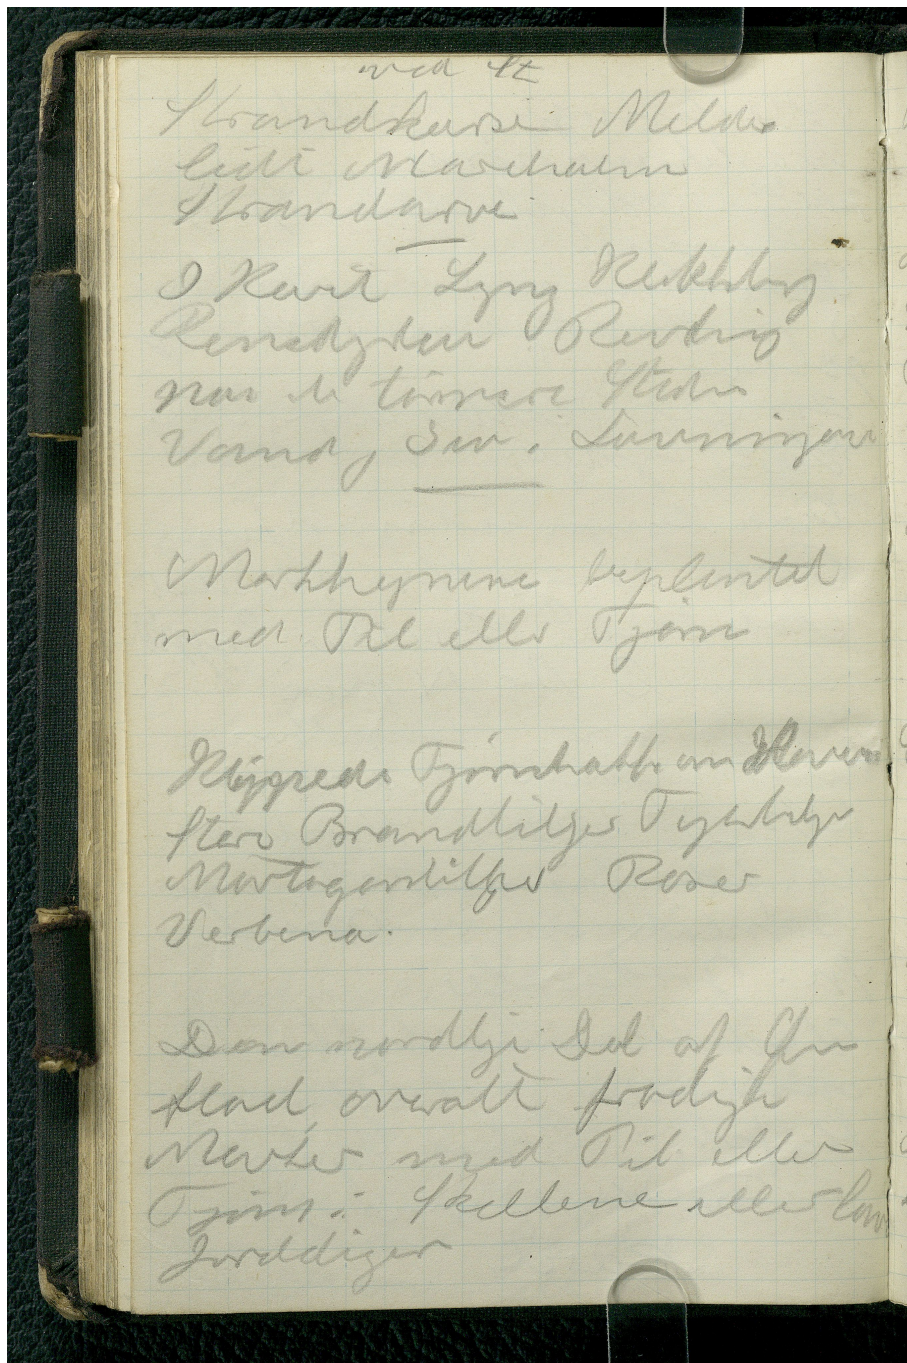 ved St
Strandkarse Melde
lidt Marehalm
Strandarve
I Havet Lyng Klokkelyng
Rensdyrlav Revling
paa de tørrere Steder
Vand, Siv i Lavningen
Markhegnene beplantet
med Pil eller Tjørn
Tjørnhække om Haven
Store Brandliljer Tigerlilje
Martagonliljer Roser
Verbena.
Den nordlige Del af Øen
flad, overalt frodige
Marker med Pil eller
Tjørn i Skellene eller lave
Jorddiger